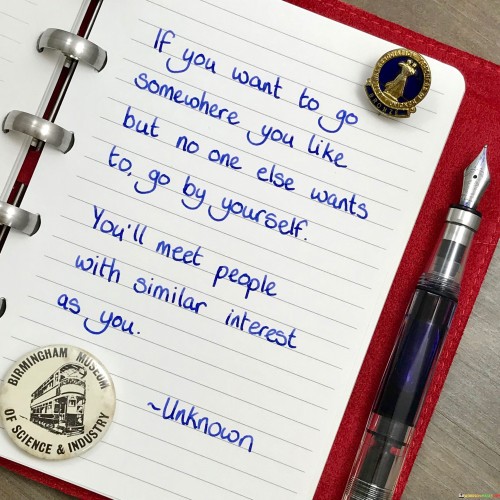 If you want to go
somewhere you like
but no one else wants
to, go by yourself.
You'll meet people
with similar interest
as you.
~Unknown
BIRMINGHAM MUSEUM
OF SCIENCE & INDUSTRY